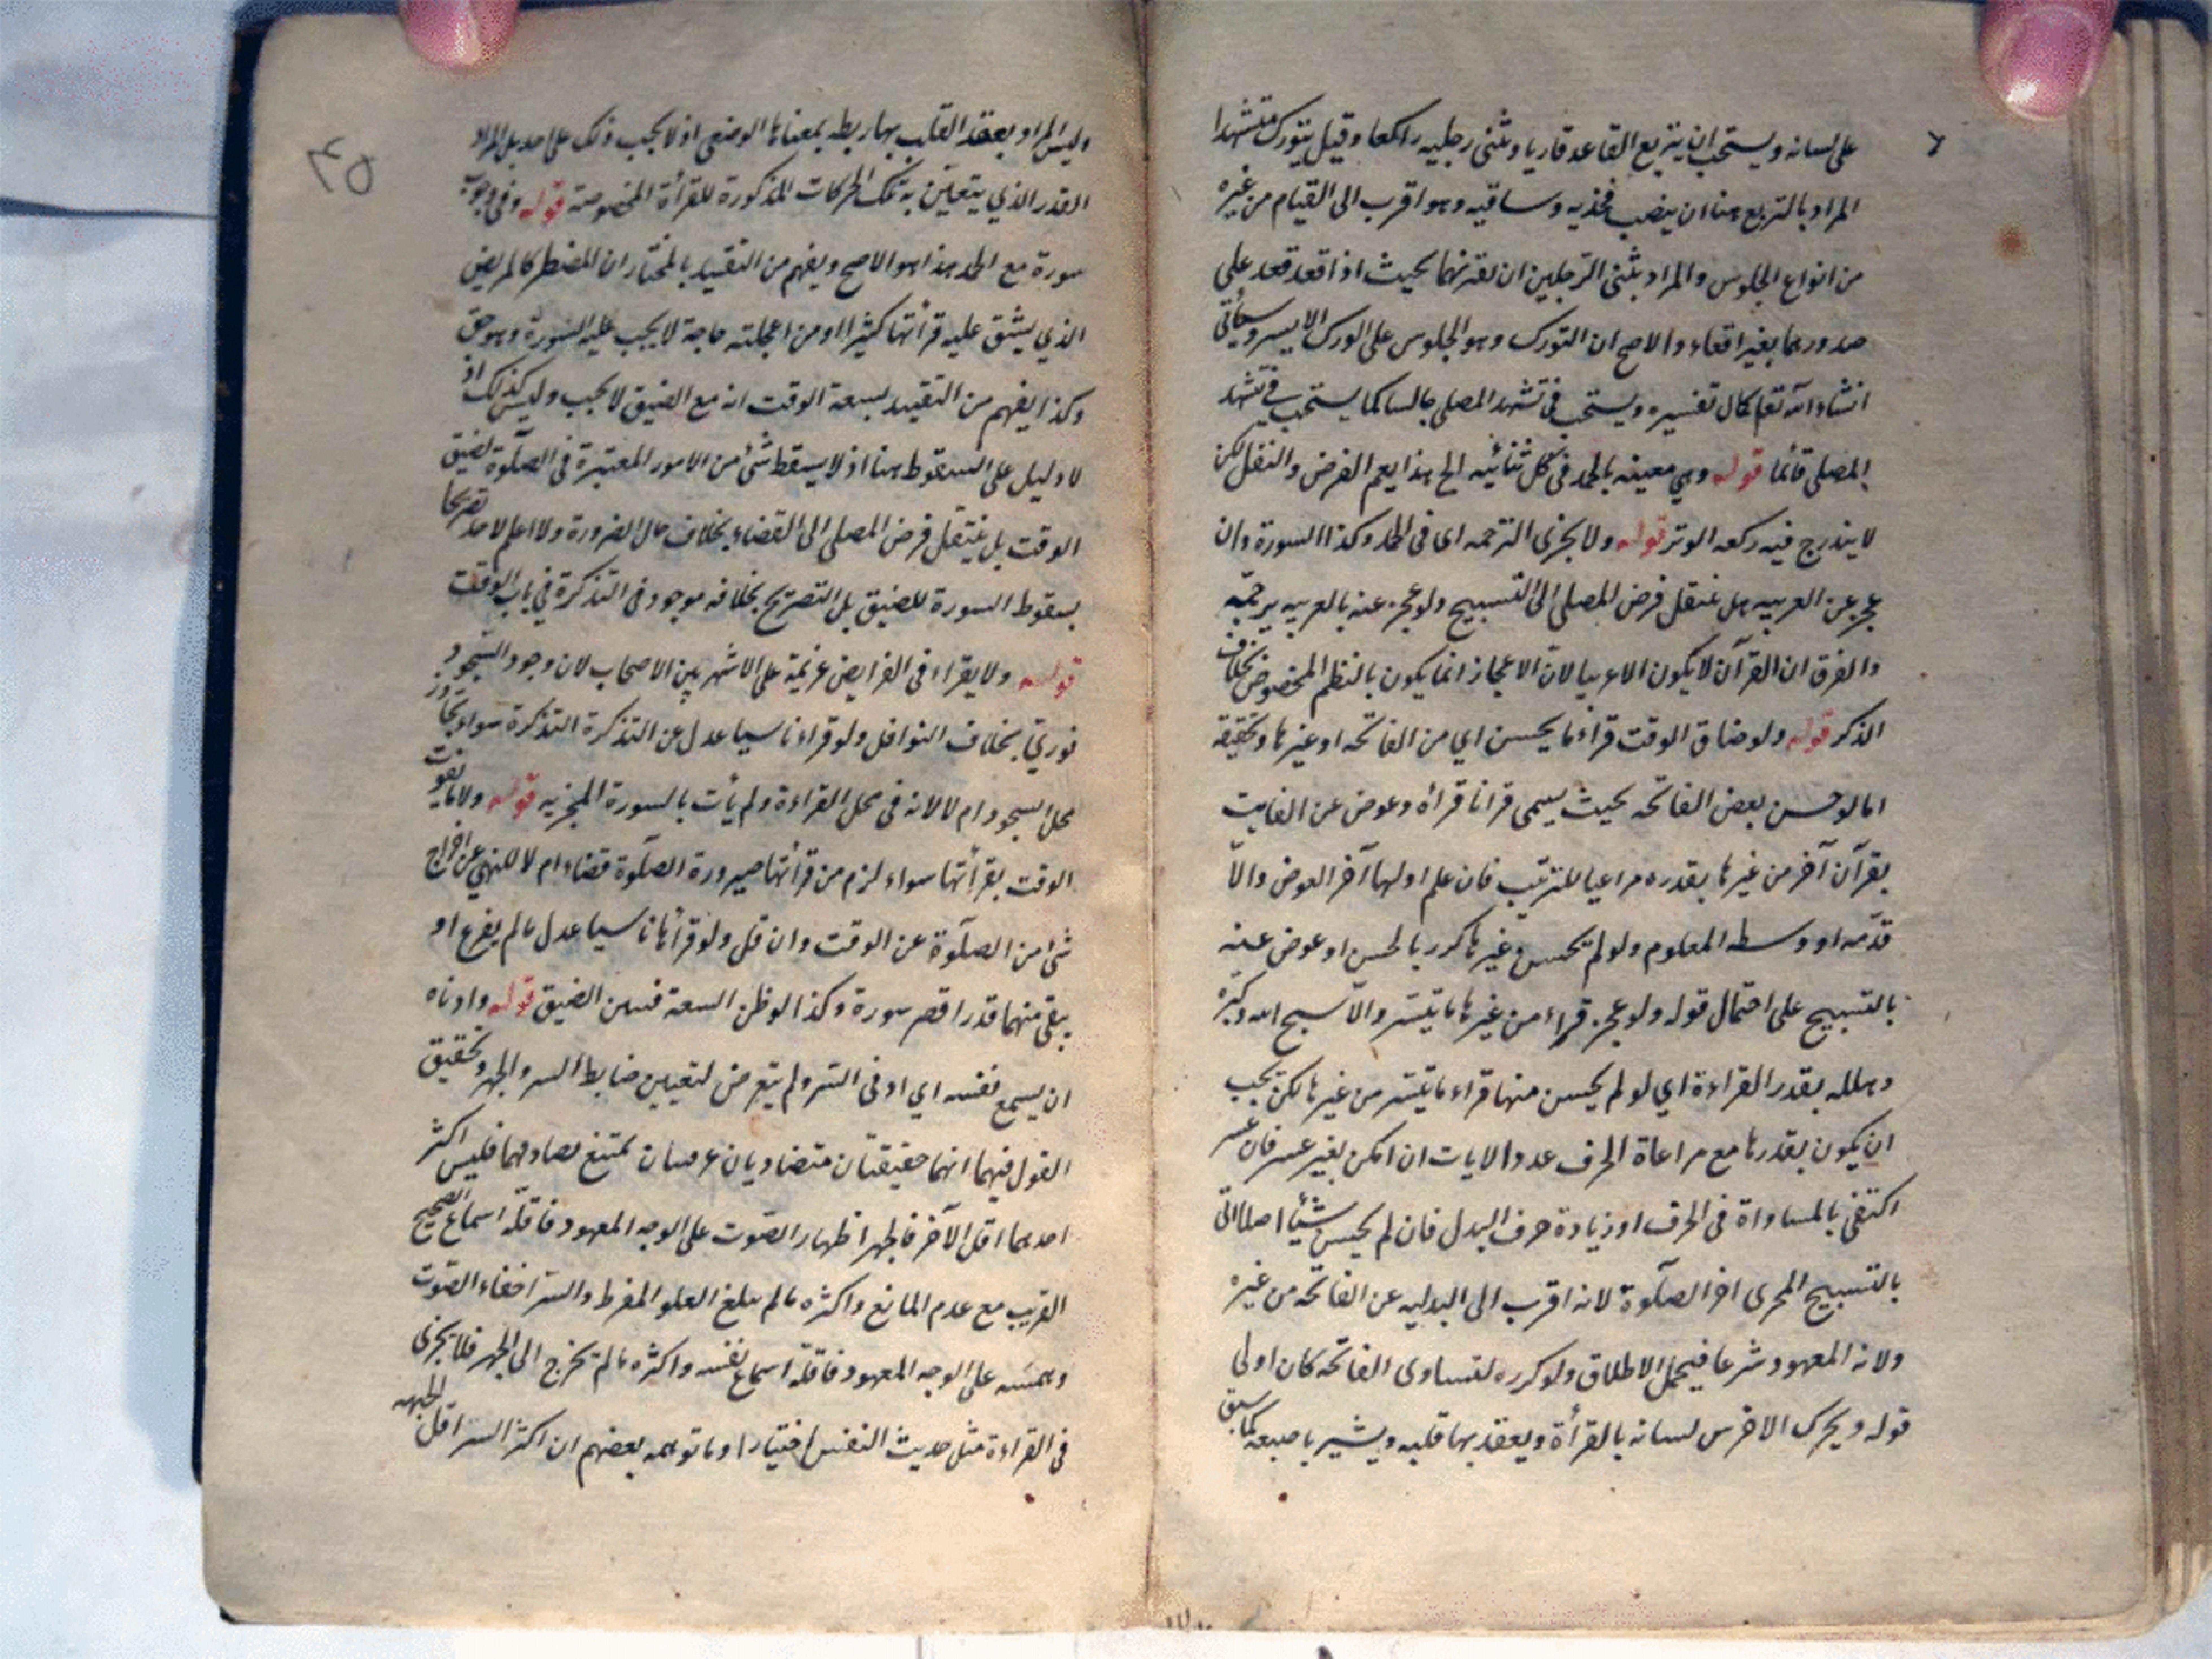 على لسانه ويستحب ان يتربع القاعد قاريا ويثنى رجليه راكعا وقيل يتورك متشهدا
المراد بالتربع هنا ان ينصب فخذيه وساقيه وهو اقرب الى القيام من غيره
من انواع الجلوس والمراد بثنى الرجلين ان يفترشهما بحيث اذا قعد قعد على
صدورهما بغير اقعاء والاصح ان التورك وهو الجلوس على الورك الايسر وسيأتى
انشاء الله تعا كمال تفسيره ويستحب فى تشهد المصلى جالسا كما يستحب فى تشهد
المصلى قائما قوله وهى معينه بالحمد فى كل ثنائيه الخ هذا يعم الفرض والنفل لكن
لا يندرج فيه ركعه الوتر قوله ولا يجزى الترجمه اى فى الحمد وكذا السورة وان
عجز عن العربيه بل ينتقل فرض المصلى الى التسبيح ولو عجز عنه بالعربيه يترجمه
والفرق ان القرآن لا يكون الا عربيا لان الاعجاز انما يكون بالنظم المخصوص بخلاف
الذكر قوله ولو ضاق الوقت قراء ما يحسن اي من الفاتحه او غيرها وتحقيقه
اما لو حسن بعض الفاتحه بحيث يسمى قرانا قرأه وعوض عن الفايت
بقرآن آخر من غيرها بقدره مراعيا للترتيب فان علم اولها آخر العوض والا
قدمه او وسطه المعلوم ولو لم يحسن غيرها كرر بالحسن او عوض عنه
بالتسبيح على احتمال قوله ولو عجز قراء من غيرها ما يتيسر والا سبح الله وكبره
وهلله بقدر القراءة اي لو لم يحسن منها قراء ما يتيسر من غيرها لكن يجب
ان يكون بقدرها مع مراعاة الحرف عدد الايات ان امكن بغير عسر فان عسر
اكتفى بالمساواة فى الحرف او زيادة حرف البدل فان لم يحسن شيئا اصلا اتى
بالتسبيح المجزى اخر الصلوة لانه اقرب الى البدليه عن الفاتحه من غيره
ولانه المعهود شرعا فيحمل الاطلاق ولو كرره لتساوى الفاتحه كان اولى
قوله ويحرك الاخرس لسانه بالقرأة ويعقد بها قلبه ويشير باصبعه كما سبق
وليس المراد بعقد القلب بها ربطه بمعناها الوضعى اذ لا يجب ذلك على احد بل المراد
القدر الذي يتعين به تلك الحركات المذكورة للقرأة المخصوصة قوله وفى وجوب
سورة مع الحمد هذا هو الاصح ويفهم من التقييد بالمختار ان المضطر كالمريض
الذي يشق عليه قرأتها كثيرا او من اعجلته حاجة لا يجب عليه السورة وهو حق
وكذا يفهم من التقييد لسعة الوقت انه مع الضيق لا يجب وليس كذلك اذ
لا دليل على السقوط هنا اذ لا يسقط شئ من الامور المعتبرة فى الصلوة لضيق
الوقت بل ينتقل فرض المصلى الى القضاء بخلاف حال الضرورة ولا اعلم لاحد تصريحا
بسقوط السورة للضيق بل التصريح بخلافه موجود فى التذكرة في باب الوقت
قوله ولا يقراء فى الفرايض عزيمة على الاشهر بين الاصحاب لان وجود السجود
فوري بخلاف النوافل ولو قراء ناسيا عدل عن التذكرة التذكرة سواء تجاوز
محل السجود ام لا لانه فى محل القراءة ولم يأت بالسورة المجزيه قوله ولا ما يفوت
الوقت بقرأتها سواء لزم من قرأتها صيرورة الصلوة قضاء ام لا للنهي عن اخراج
شئ من الصلوة عن الوقت وان قل ولو قرأها ناسيا عدل مالم يفرغ او
يبقى منها قدر اقصر سورة وكذا لو ظن السعة فتبين الضيق قوله وادناه
ان يسمع نفسه اي ادنى السر ولم يتعرض لتعيين ضابط السر والجهر وتحقيق
القول فيهما انهما حقيقتان متضادتان عرفيتان يمتنع تصادمهما فليس اكثر
احدهما اقل الآخر فالجهر اظهار الصوت على الوجه المعهود فاقله اسماع الصحيح
القريب مع عدم المانع واكثره مالم يبلغ العلو المفرط والسر اخفاء الصوت
وهمسه على الوجه المعهود فاقله اسماع نفسه واكثره مالم يخرج الى الجهر فلا يجزى
فى القراءة مثل حديث النفس اختيارا وما توهمه بعضهم ان اكثر السر اقل الجهر